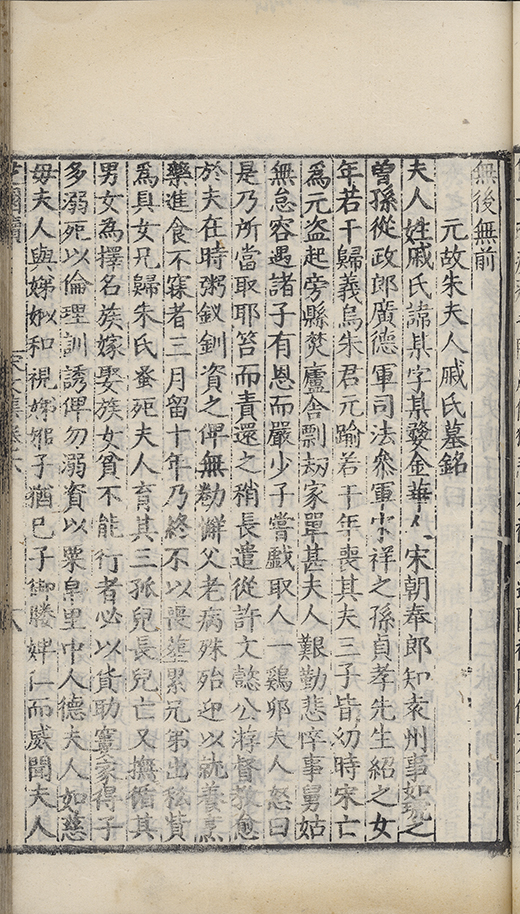 無後無前
元故朱夫人戚氏墓銘
夫人姓戚氏諱某字某婺金華人宋朝奉郎知袁州事如琥之
曾孫從政郎廣德軍司法叅軍宋祥之孫貞孝先生紹之女
年若干歸義烏朱君元踰若干年喪其夫三子皆幼時宋亡
為元盗起旁縣焚廬舎剽刼家單甚夫人艱勤悲悴事舅姑
無怠容遇諸子有恩而嚴少子嘗戲取人一鷄卵夫人怒曰
是乃所當取耶笞而責還之稍長遣從許文懿公游督教愈
於夫在時粥釵釧資之俾無勌懈父老病殊殆迎以就養烹
藥進食不寐者三月留十年乃終不以喪葬累兄弟出私貲
為具女兄歸朱氏蚤死夫人育其三孤兒長兒亡又撫循其
男女為擇名族嫁娶族女貧不能行者必以貲助竇家得子
多溺死以倫理訓誘俾勿溺資以粟帛里中人德夫人如慈
毋夫人與娣姒和視娣姒子猶巳子御媵婢仁而威聞夫人